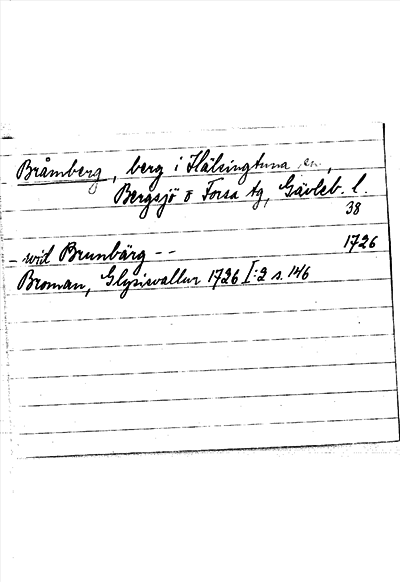 Bråmberg, berg i Hälsingtuna sn,
Bergsjö o Forsa tg, Gävleb. l.
38
wid Brunbärg -- 1726
Broman, Glysisvallur 1726 I:2 s. 146